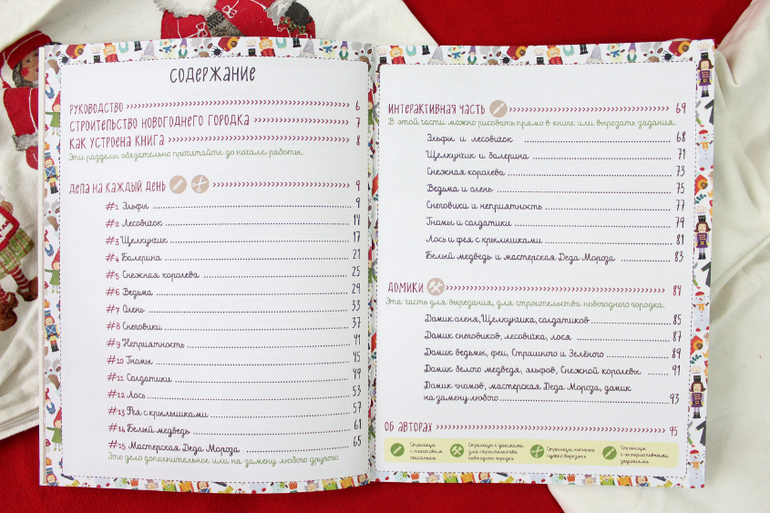 СОДЕРЖАНИЕ
РУКОВОДСТВО 6
СТРОИТЕЛЬСТВО НОВОГОДНЕГО ГОРОДКА 7
КАК УСТРОЕНА КНИГА 8
Эти разделы обязательно прочитайте до начала работы.
ДЕЛА НА КАЖДЫЙ ДЕНЬ 9
#1 Эльфы 9
#2 Лесовичок 14
#3 Щелкунчик 17
#4 Балерина 21
#5 Снежная королева 25
#6 Ведьма 29
#7 Олень 33
#8 Снеговики 37
#9 Неприятность 41
#10 Гномы 45
#11 Солдатики 49
#12 Лось 53
#13 Фея с крылышками 57
#14 Белый медведь 61
#15 Мастерская Деда Мороза 65
Это дело дополнительное или на замену любого другого
ИНТЕРАКТИВНАЯ ЧАСТЬ 69
В этой части можно рисовать прямо в книге или вырезать задания.
Эльфы и лесовичок 68
Щелкунчик и балерина 71
Снежная королева 73
Ведьма и олень 75
Снеговики и неприятность 77
Гномы и солдатики 79
Лось и фея с крылышками 81
Белый медведь и мастерская Деда Мороза 83
ДОМИКИ 84
Эта часть для вырезания, для строительства новогоднего городка.
Домик оленя, Щелкунчика, солдатиков 85
Домик снеговиков, лесовичка, лося 87
Домик ведьмы, феи, Страшного и Зелёного 89
Домик белого медведя, эльфов, Снежной королевы 91
Домик гномов, мастерская Деда Мороза, домик
на замену любого 93
ОБ АВТОРАХ 95
Страницы
с
Страницы с домиками,
для строительства
новогоднего городка
Страницы, которые
нужно вырезать
Страницы
с интерактивными
заданиями